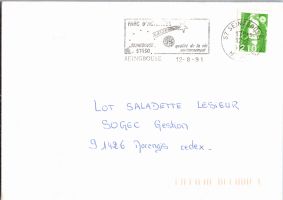 PARC D'ACTIVITES
SEINGBOUSE
57450
qualité de la vie
environnement
SEINGBOUSE 12-8-91
ST SEINGBOUSE
LOT SALADETTE LESIEUR
SOGEC Gestion
91426 Morangis cedex.